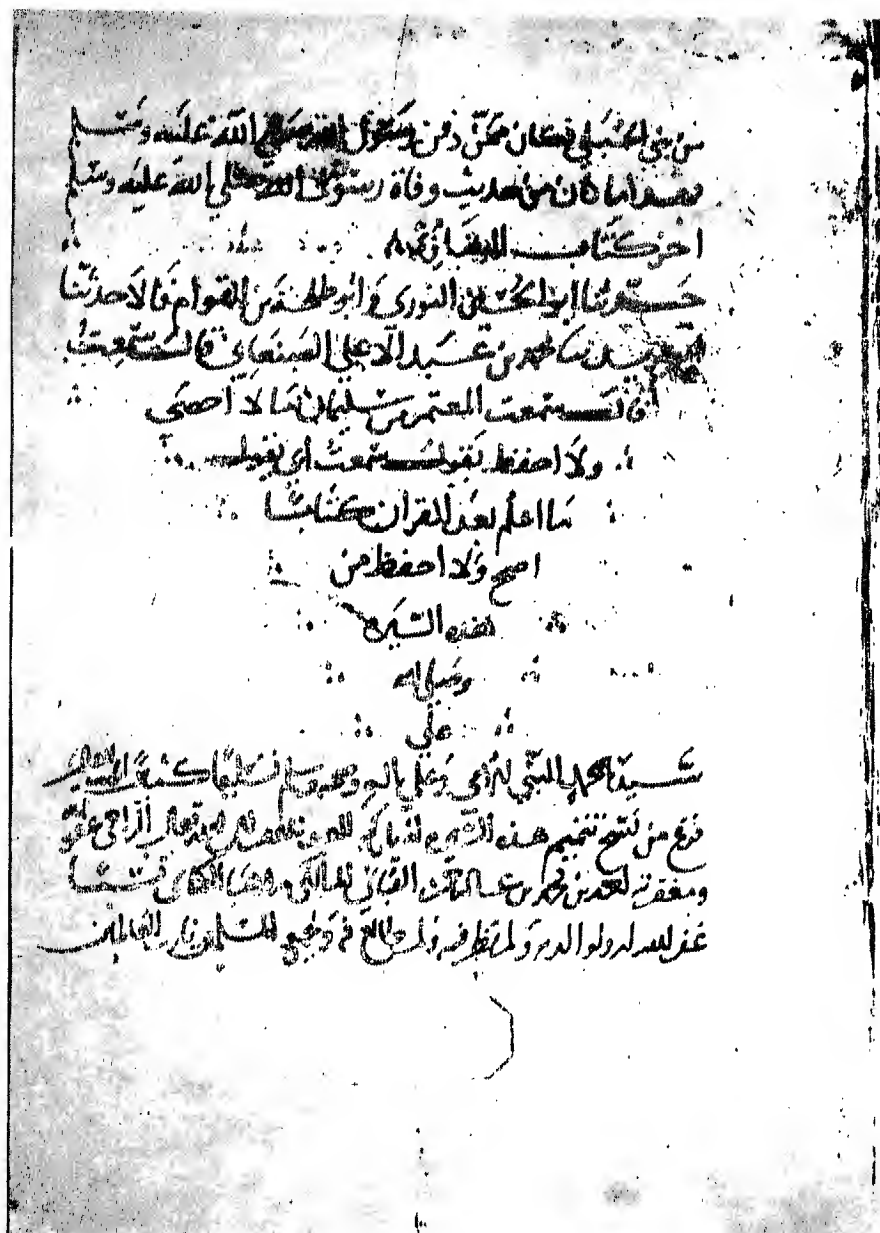 من بني الحبلي فكان ممن دفن رسول الله صلى الله عليه وسلم
فهذا ما كان من حديث وفاة رسول الله صلي الله عليه وسلم
اخر كتاب المغازي
حدثنا ابو الحسن النوري وابو طلحة بن القوام قالا حدثنا
محمد بن عبد الاعلي الصنعاني قال سمعت
قال سمعت المعتمر بن سليمان ما لا احصي
ولا احفظ يقول سمعت ابي يقول
ما اعلم بعد القران كتابا
اصح ولا احفظ من
هذه السيرة
وصلي الله
علي
سيدنا محمد النبي الامي وعلي اله وصحبه وسلم تسليما كثيرا
فرغ من نسخ تتميم هذه السيره الراجي عفو
ومغفرته احمد بن محمد بن المالكي مذهبا
غفر الله له ولوالديه ولمن نظر فيه ولمن طالع فيه ولجميع المسلمين العالمين